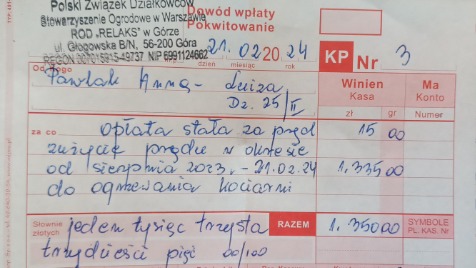 Polski Związek Działkowców
Stowarzyszenie Ogrodowe w Warszawie
ROD „RELAKS" w Górze
ul. Głogowska B/N, 56-200 Góra
Dowód wpłaty
Pokwitowanie
21.02 20 24
dzień miesiąc
KP Nr 3
Od kogo
Pawlak Anna - Luiza
Dz. 25/II
Winien
Kasa
Ma
Konto
zł gr Numer
za co opłata stała za prąd 15 00
zużycie prądu w okresie
od sierpnia 2023. - 21.02.24 1.335 00
do ogrzewania kociarni
Słownie
złotych
jeden tysiąc trzysta
RAZEM 1.350 00
SYMBOLE
PL. KAS. Nr
trzydzieści pięć 00/100